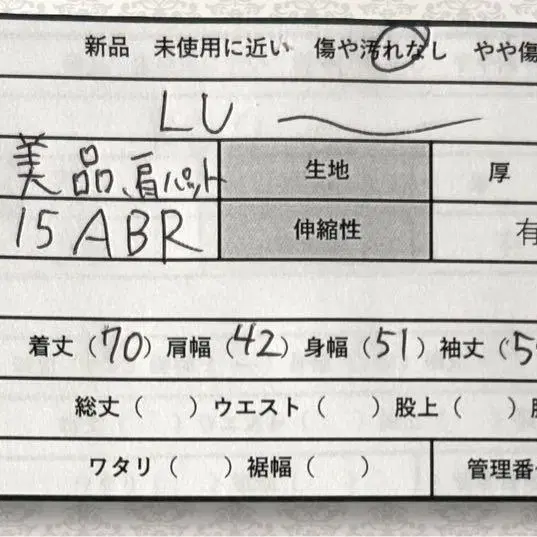 新品 未使用に近い 傷や汚れなし やや傷
LU
美品、肩パット 生地 厚
15ABR 伸縮性 有
着丈(70) 肩幅(42) 身幅(51) 袖丈(5
総丈( ) ウエスト( ) 股上( )
ワタリ( ) 裾幅( ) 管理番